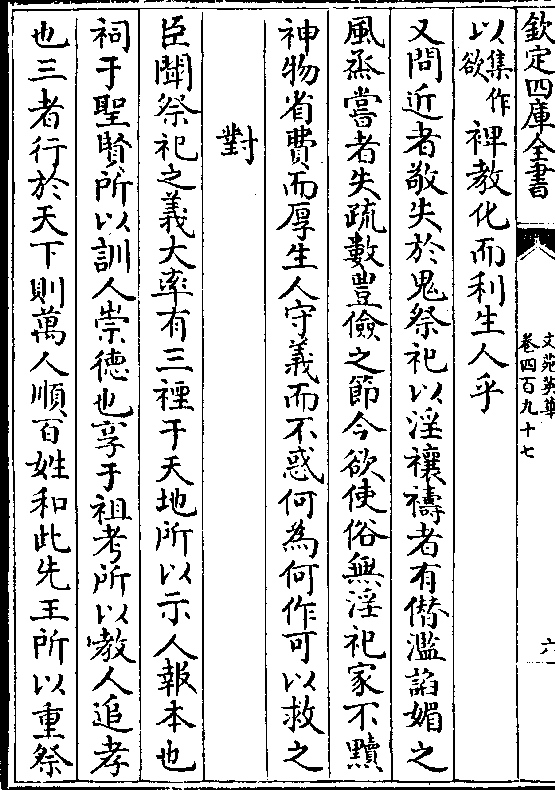 欽定四庫全書
文苑英華
卷四百九十七
六
以集作欲裨教化而利生人乎
又問近者敬失於鬼祭祀以淫禳禱者有僭濫謟媚之
風烝嘗者失疏數豐儉之節今欲使俗無淫祀家不黷
神物省費而厚生人守義而不惑何為何作可以救之
對
臣聞祭祀之義大率有三禋于天地所以示人報本也
祠于聖賢所以訓人崇德也享于祖考所以教人追孝
也三者行於天下則萬人順百姓和此先王所以重祭